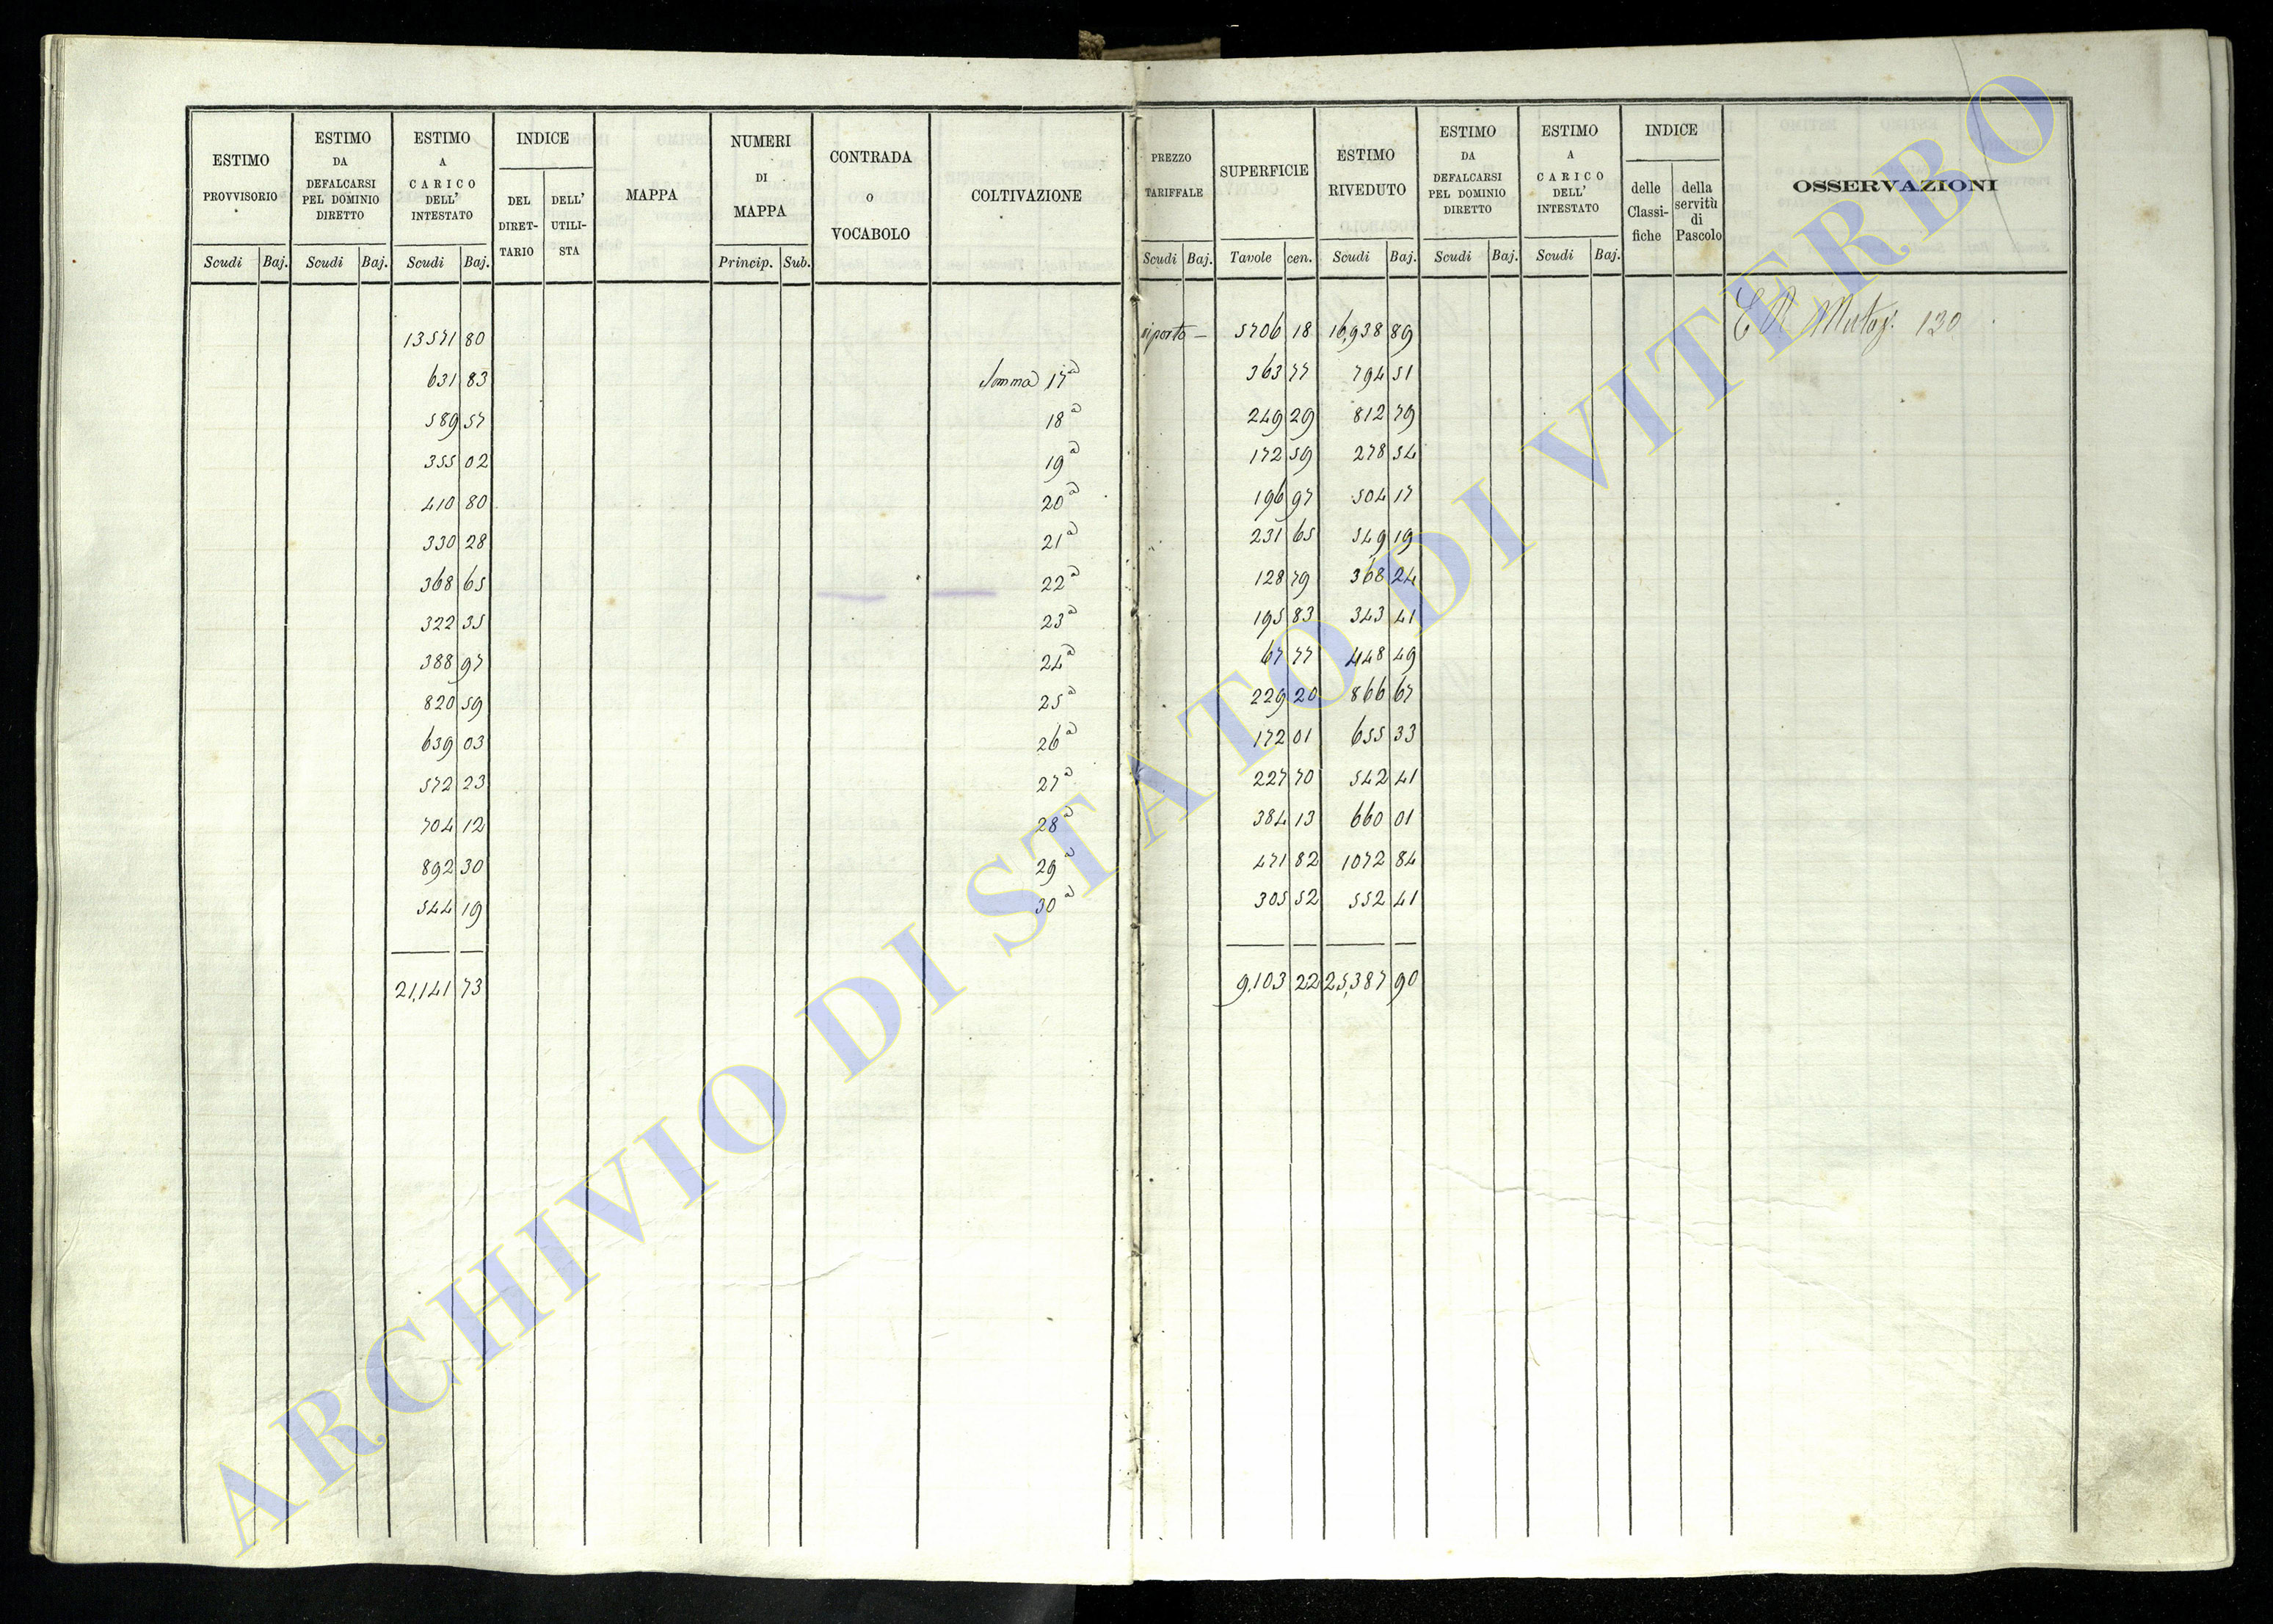 ESTIMO PROVVISORIO
Scudi Baj.
ESTIMO DA DEFALCARSI PEL DOMINIO DIRETTO
Scudi Baj.
ESTIMO A CARICO DELL' INTESTATO
Scudi Baj.
INDICE
DEL DIRET-TARIO
DELL' UTILI-STA
MAPPA
NUMERI DI MAPPA
Princip. Sub.
CONTRADA O VOCABOLO
COLTIVAZIONE
PREZZO TARIFFALE
Scudi Baj.
SUPERFICIE
Tavole cen.
ESTIMO RIVEDUTO
Scudi Baj.
ESTIMO DA DEFALCARSI PEL DOMINIO DIRETTO
Scudi Baj.
ESTIMO A CARICO DELL' INTESTATO
Scudi Baj.
INDICE
delle Classi-fiche
della servitù di Pascolo
OSSERVAZIONI
13571 80 riporto — 5706 18 16,938 89 130
631 83 Somma 17a 363 77 794 51
589 57 18a 249 29 812 79
355 02 19a 172 59 278 54
410 80 20a 196 97 504 17
330 28 21a 231 65 549 19
368 65 22a 128 79 368 24
322 35 23a 195 83 343 41
388 97 24a 67 77 448 49
820 59 25a 229 20 866 67
639 03 26a 172 01 655 33
572 23 27a 227 70 542 41
704 12 28a 384 13 660 01
892 30 29a 471 82 1072 84
544 19 30a 305 52 552 41
21,141 73 9,103 22 25,387 90
ARCHIVIO DI STATO DI VITERBO